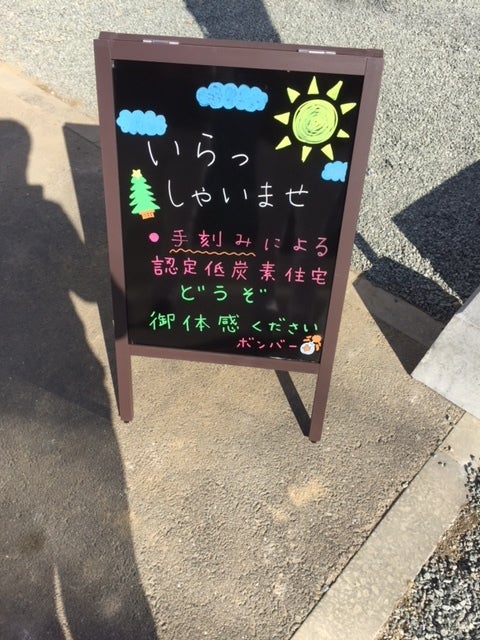 いらっ
しゃいませ
● 手刻みによる
認定低炭素住宅
どうぞ
御体感ください
ボンバー